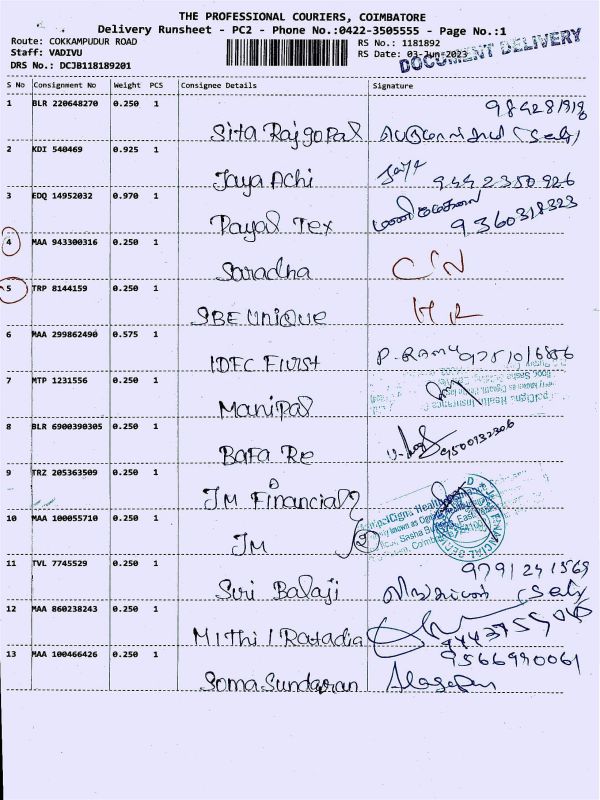 THE PROFESSIONAL COURIERS, COIMBATORE
Delivery Runsheet - PC2 - Phone No.:0422-3505555 - Page No.:1
Route: COKKAMPUDUR ROAD
Staff: VADIVU
DRS No.: DCJB118189201
RS No.: 1181892
RS Date: 03-Jun-2023
DOCUMENT DELIVERY
S No Consignment No Weight PCS Consignee Details Signature
1 BLR 220648270 0.250 1 Sita Rajgopal (Self)
2 KDI 540469 0.925 1 Jaya Achi Jaya 9442350926
3 EDQ 14952032 0.970 1 Payal Tex 9360318323
4 MAA 943300316 0.250 1 Saradha C/N
5 TRP 8144159 0.250 1 SBE Unique
6 MAA 299862490 0.575 1 IDFC First P. RAMU 9751016856
7 MTP 1231556 0.250 1 Manipal
8 BLR 6900390305 0.250 1 Bafa Re 9500132306
9 TRZ 205363509 0.250 1 JM Financial
10 MAA 100055710 0.250 1 JM 2
JM FINANCIAL SER
11 TVL 7745529 0.250 1 Siri Balaji 9791241569 (Self)
12 MAA 860238243 0.250 1 Mithil Ratadia
13 MAA 100466426 0.250 1 Soma Sundaran 9566990061